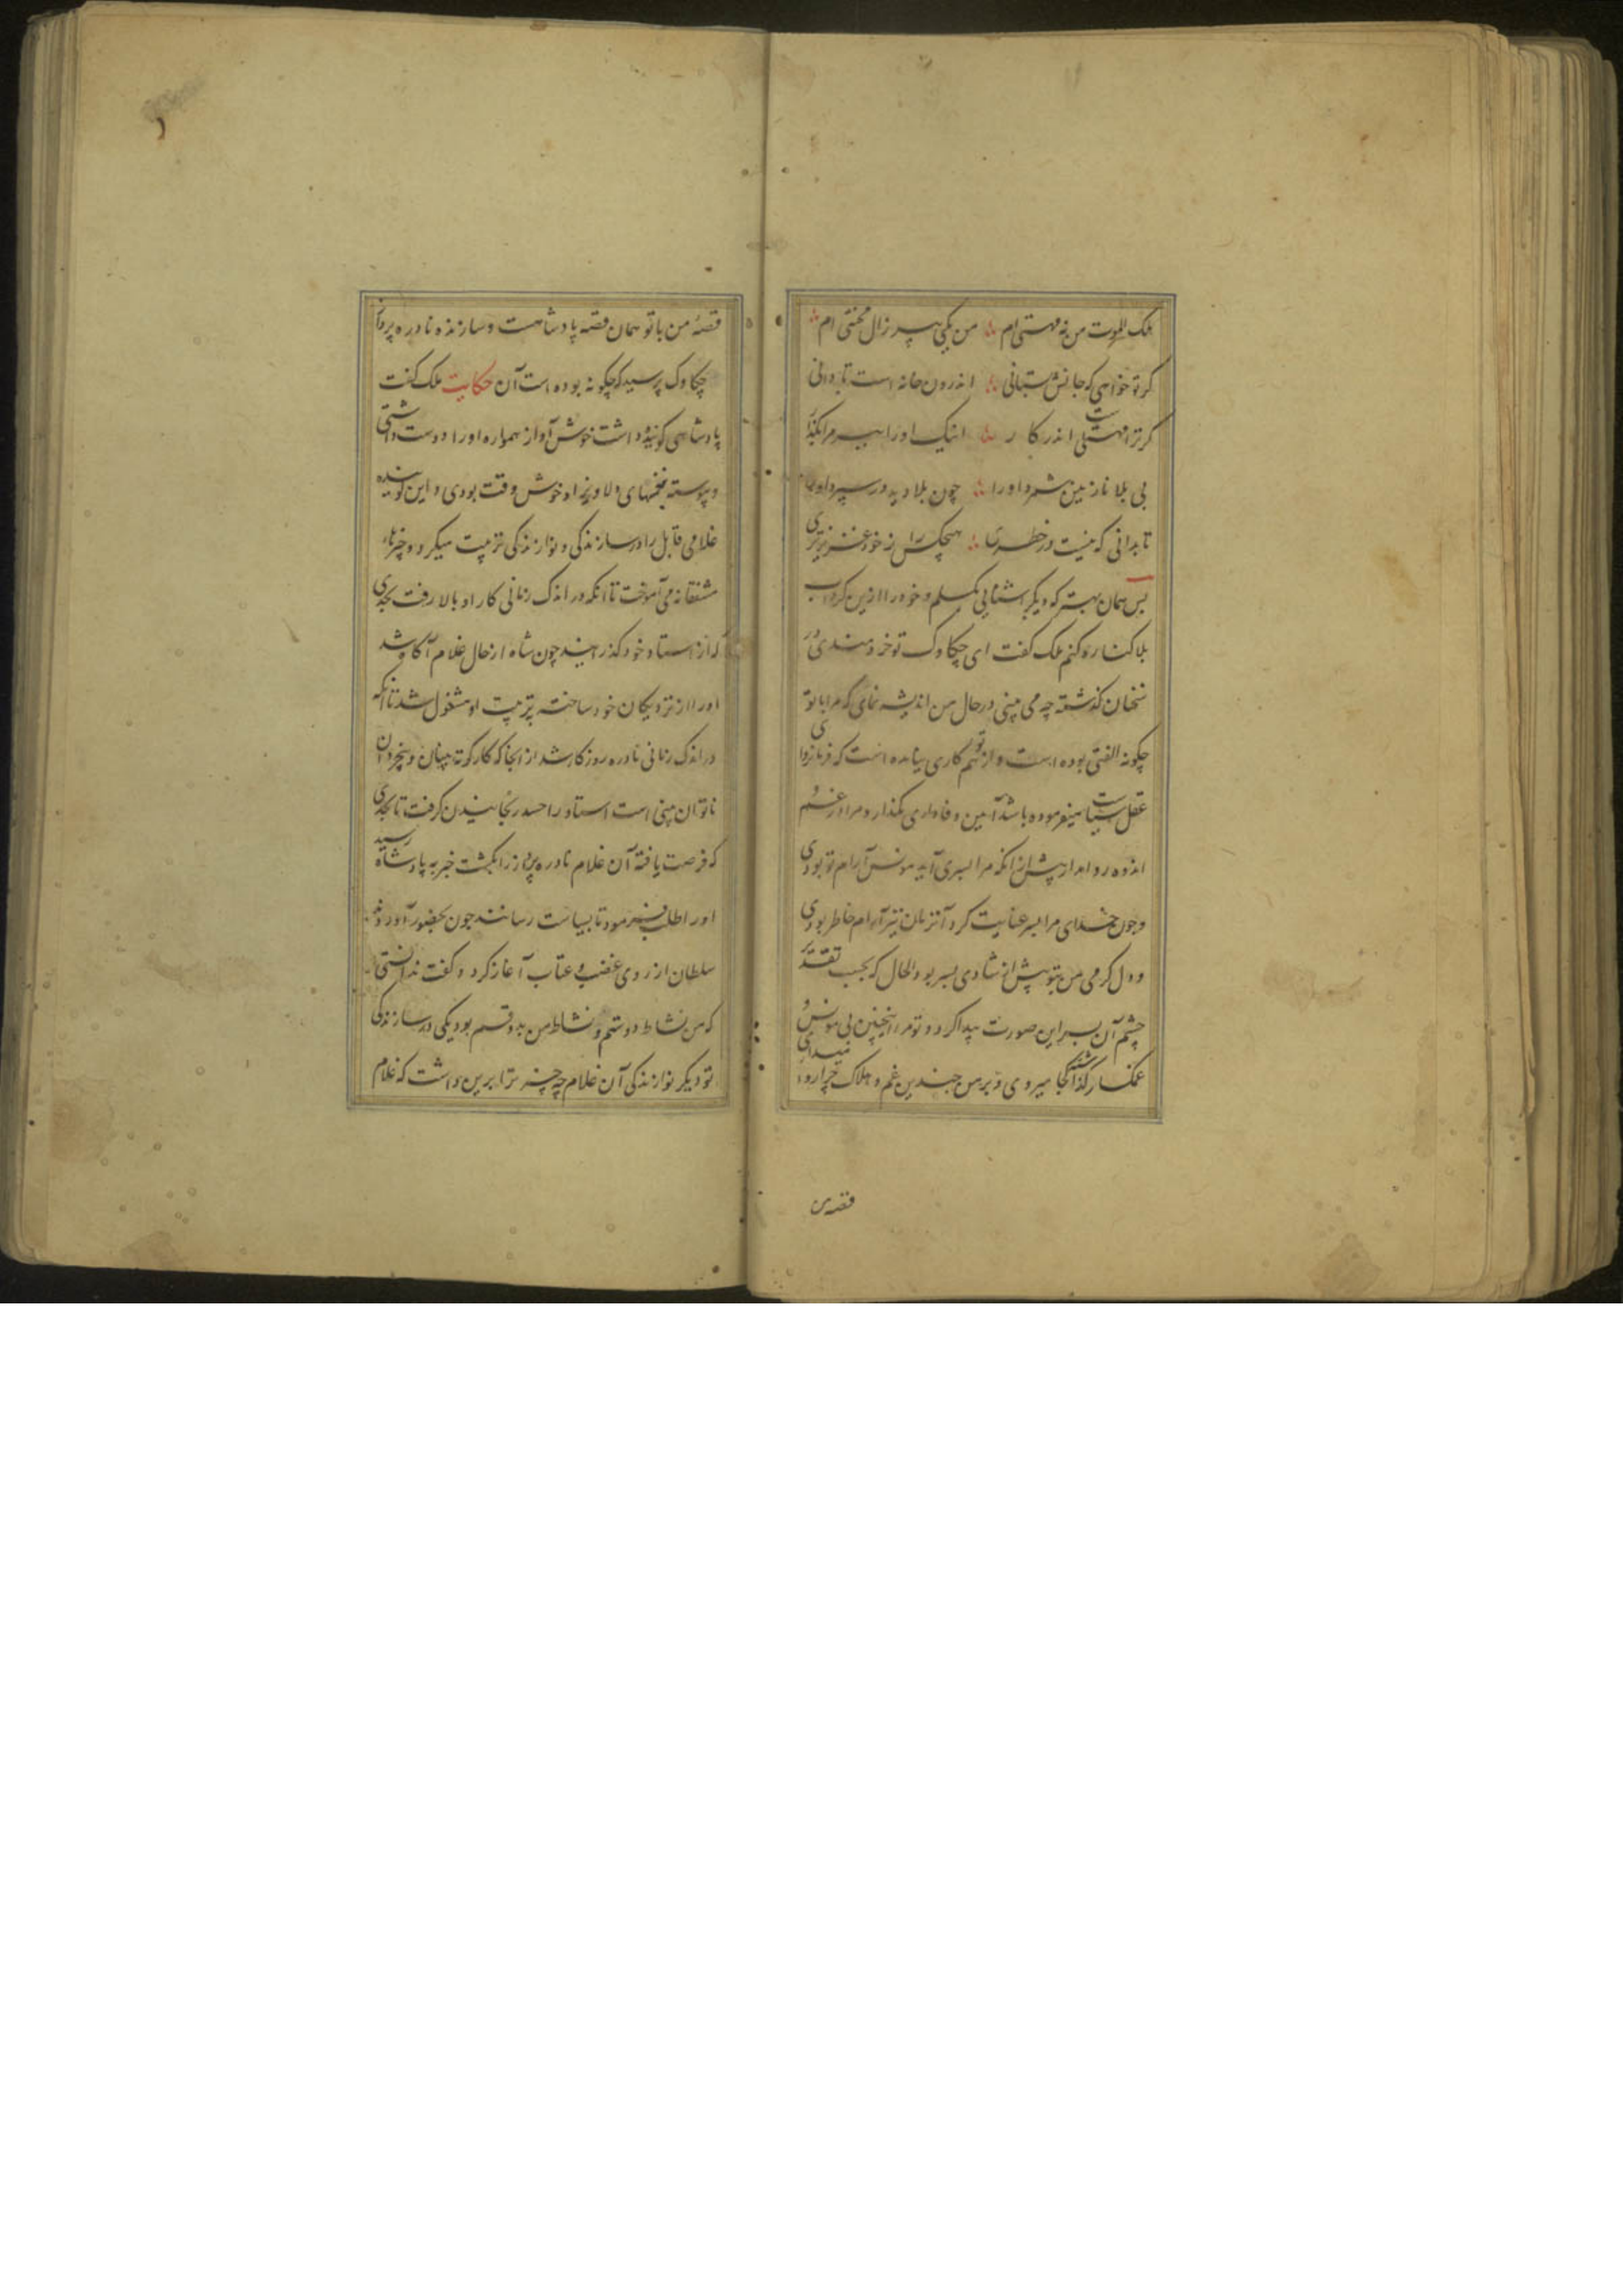 ملک الموت من نه مهستی ام من یکی پیر زال محنتی ام
کر تو خواهی که جانش بستانی اندرون خانه است تا دانی
کر ترا مهستی است اندر کار اینک اورا ببر مرا بکذار
بی بلا نازنین شمرد اورا چون بلا دید در سپرد اورا
تا بدانی که نیست در خطری هیچکس را ز خود عزیزتری
پس همان بهتر که دیکر آشنایی بکسلم و خود را ازین کرداب
بلا کناره کنم ملک کفت ای چکاوک تو خردمندی در
سخنان کذشته چه می بینی در حال من اندیشه نمای که مرا با تو
چکونه الفتی بوده است و از تو هم کاری نیامده است که فرمانروای
عقل سیاست میفرموده باشد آیین وفاداری بکذار و مرا در غم و
اندوه روا مدار پیش از آنکه مرا پسری آید مونس آرام تو بودی
و چون خدای مرا پسر عنایت کرد آنزمان نیز آرام خاطر بودی
و دل کرمی من بتو پیش از شادی پسر بود الحال که بحسب تقدیر
چشم آن پسر این صورت پیدا کرد و تو مرا اینچنین بی مونس و
غمکسار کذاشته کجا میروی و بر من چندین غم و هلاک چرا روا میداری
قصه من
قصهٔ من با تو همان قصه پادشاهست و سازنده نادره پرداز
چکاوک پرسید که چکونه بوده است آن حکایت ملک کفت
پادشاهی کوینده داشت خوش آواز همواره اورا دوست داشتی
و پیوسته بنغمهای دلاویز او خوش وقت بودی و این کوینده
غلامی قابل را در سازندکی و نوازندکی تربیت میکرد و چیزها
مشفقانه می آموخت تا آنکه در اندک زمانی کار او بالا رفت بحدی
که از استاد خود کذرانید چون شاه از حال غلام آکاه شد
اورا از نزدیکان خود ساخته بتربیت او مشغول شد تا آنکه
در اندک زمانی نادره روزکار شد از آنجا که کار کوته بینان و بیخردان
ناتوان بینی است استاد را حسد رنجانیدن کرفت تا بحدی
که فرصت یافته آن غلام نادره پرداز را بکشت خبر به پادشاه رسید
اورا طلب فرمود تا بسیاست رسانند چون بحضور آوردند
سلطان از روی غضب و عتاب آغاز کرد و کفت ندانستی
که من نشاط دوستم و نشاط من بدو قسم بود یکی در سازندکی
تو دیکر نوازندکی آن غلام چه چیز ترا برین داشت که غلام